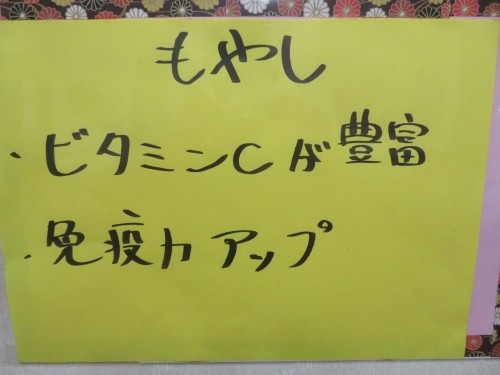 もやし
・ビタミンCが豊富
・免疫力アップ